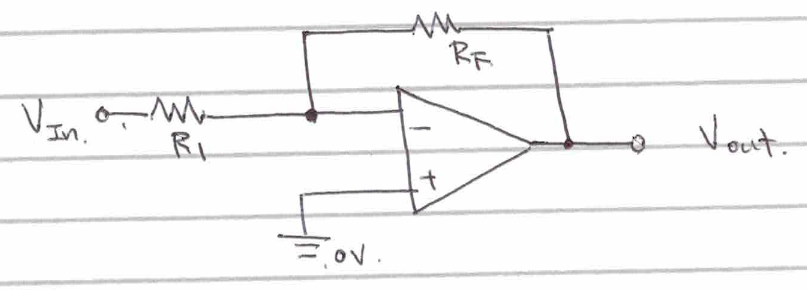 RF.
VIn.
R1
−
+
Vout.
0V.